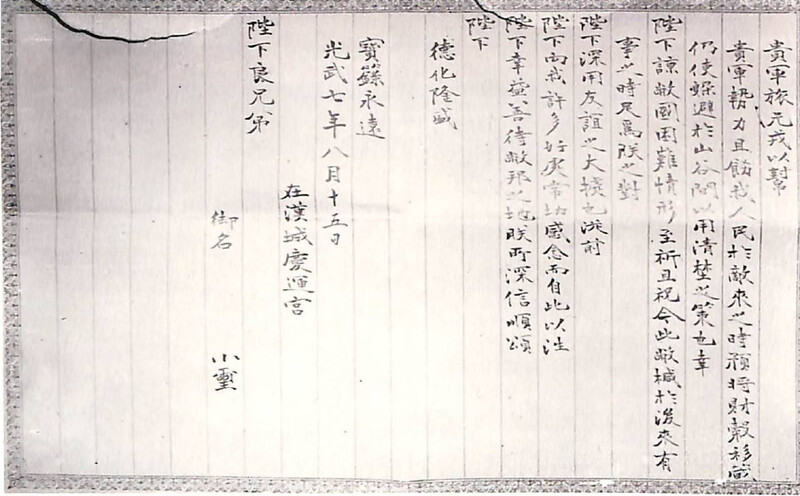 貴軍旅元戎以幫
貴軍勢力且飭我人民於敵來之時預將財穀移
仍使躱避於山谷間以用清埜之策也幸
陛下諒敝國困難情形至祈且祝今此敝緘於後來有
事之時足爲朕之對
陛下深用友誼之大據也從前
陛下向我許多好庚常切感念而自此以往
陛下幸益善待敝邦之地朕所深信順頌
陛下
德化隆盛
寶籙永遠
光武七年八月十五日
在漢城慶運宮
陛下良兄弟
御名 小璽